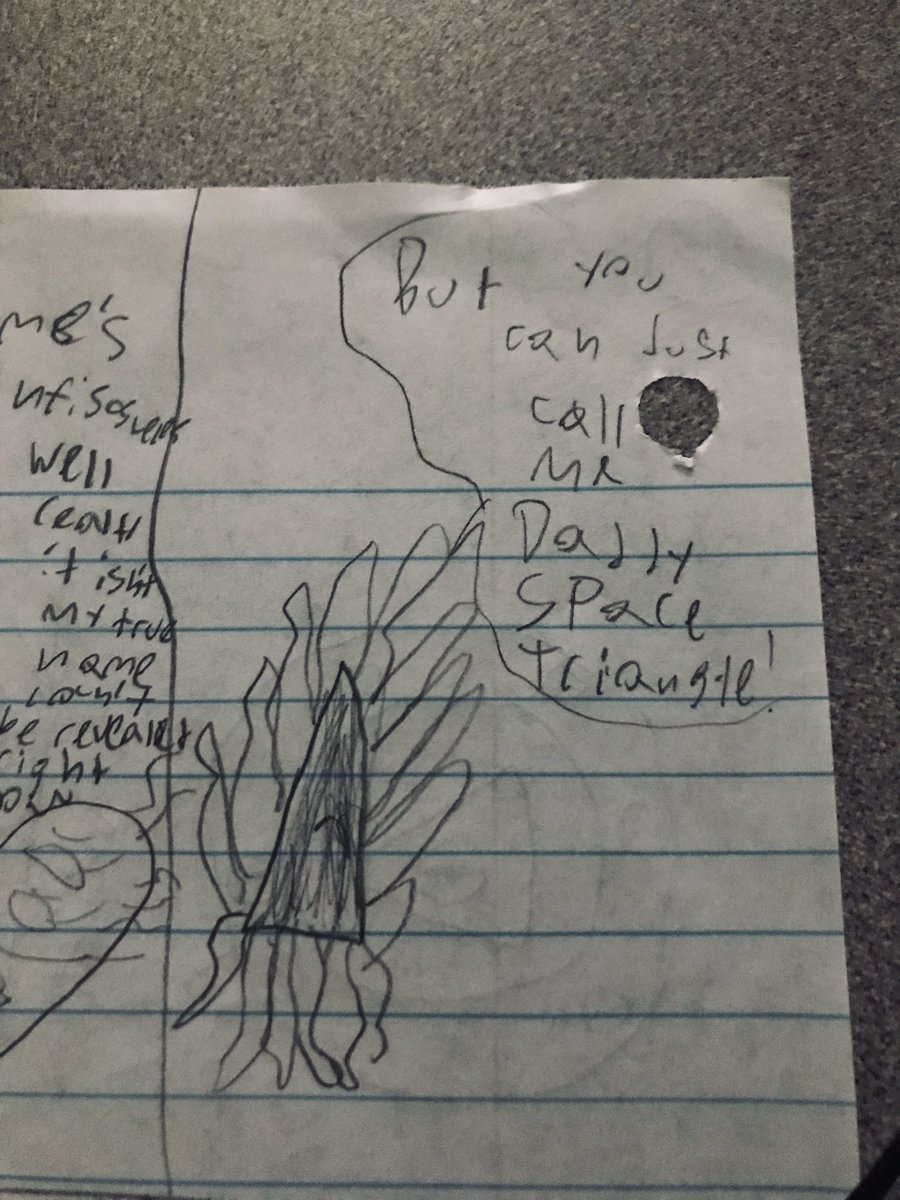 me's
well
it isn't
my true
name
be revealed
right
But you
can Just
call
me
Daddy
Space
triangle!